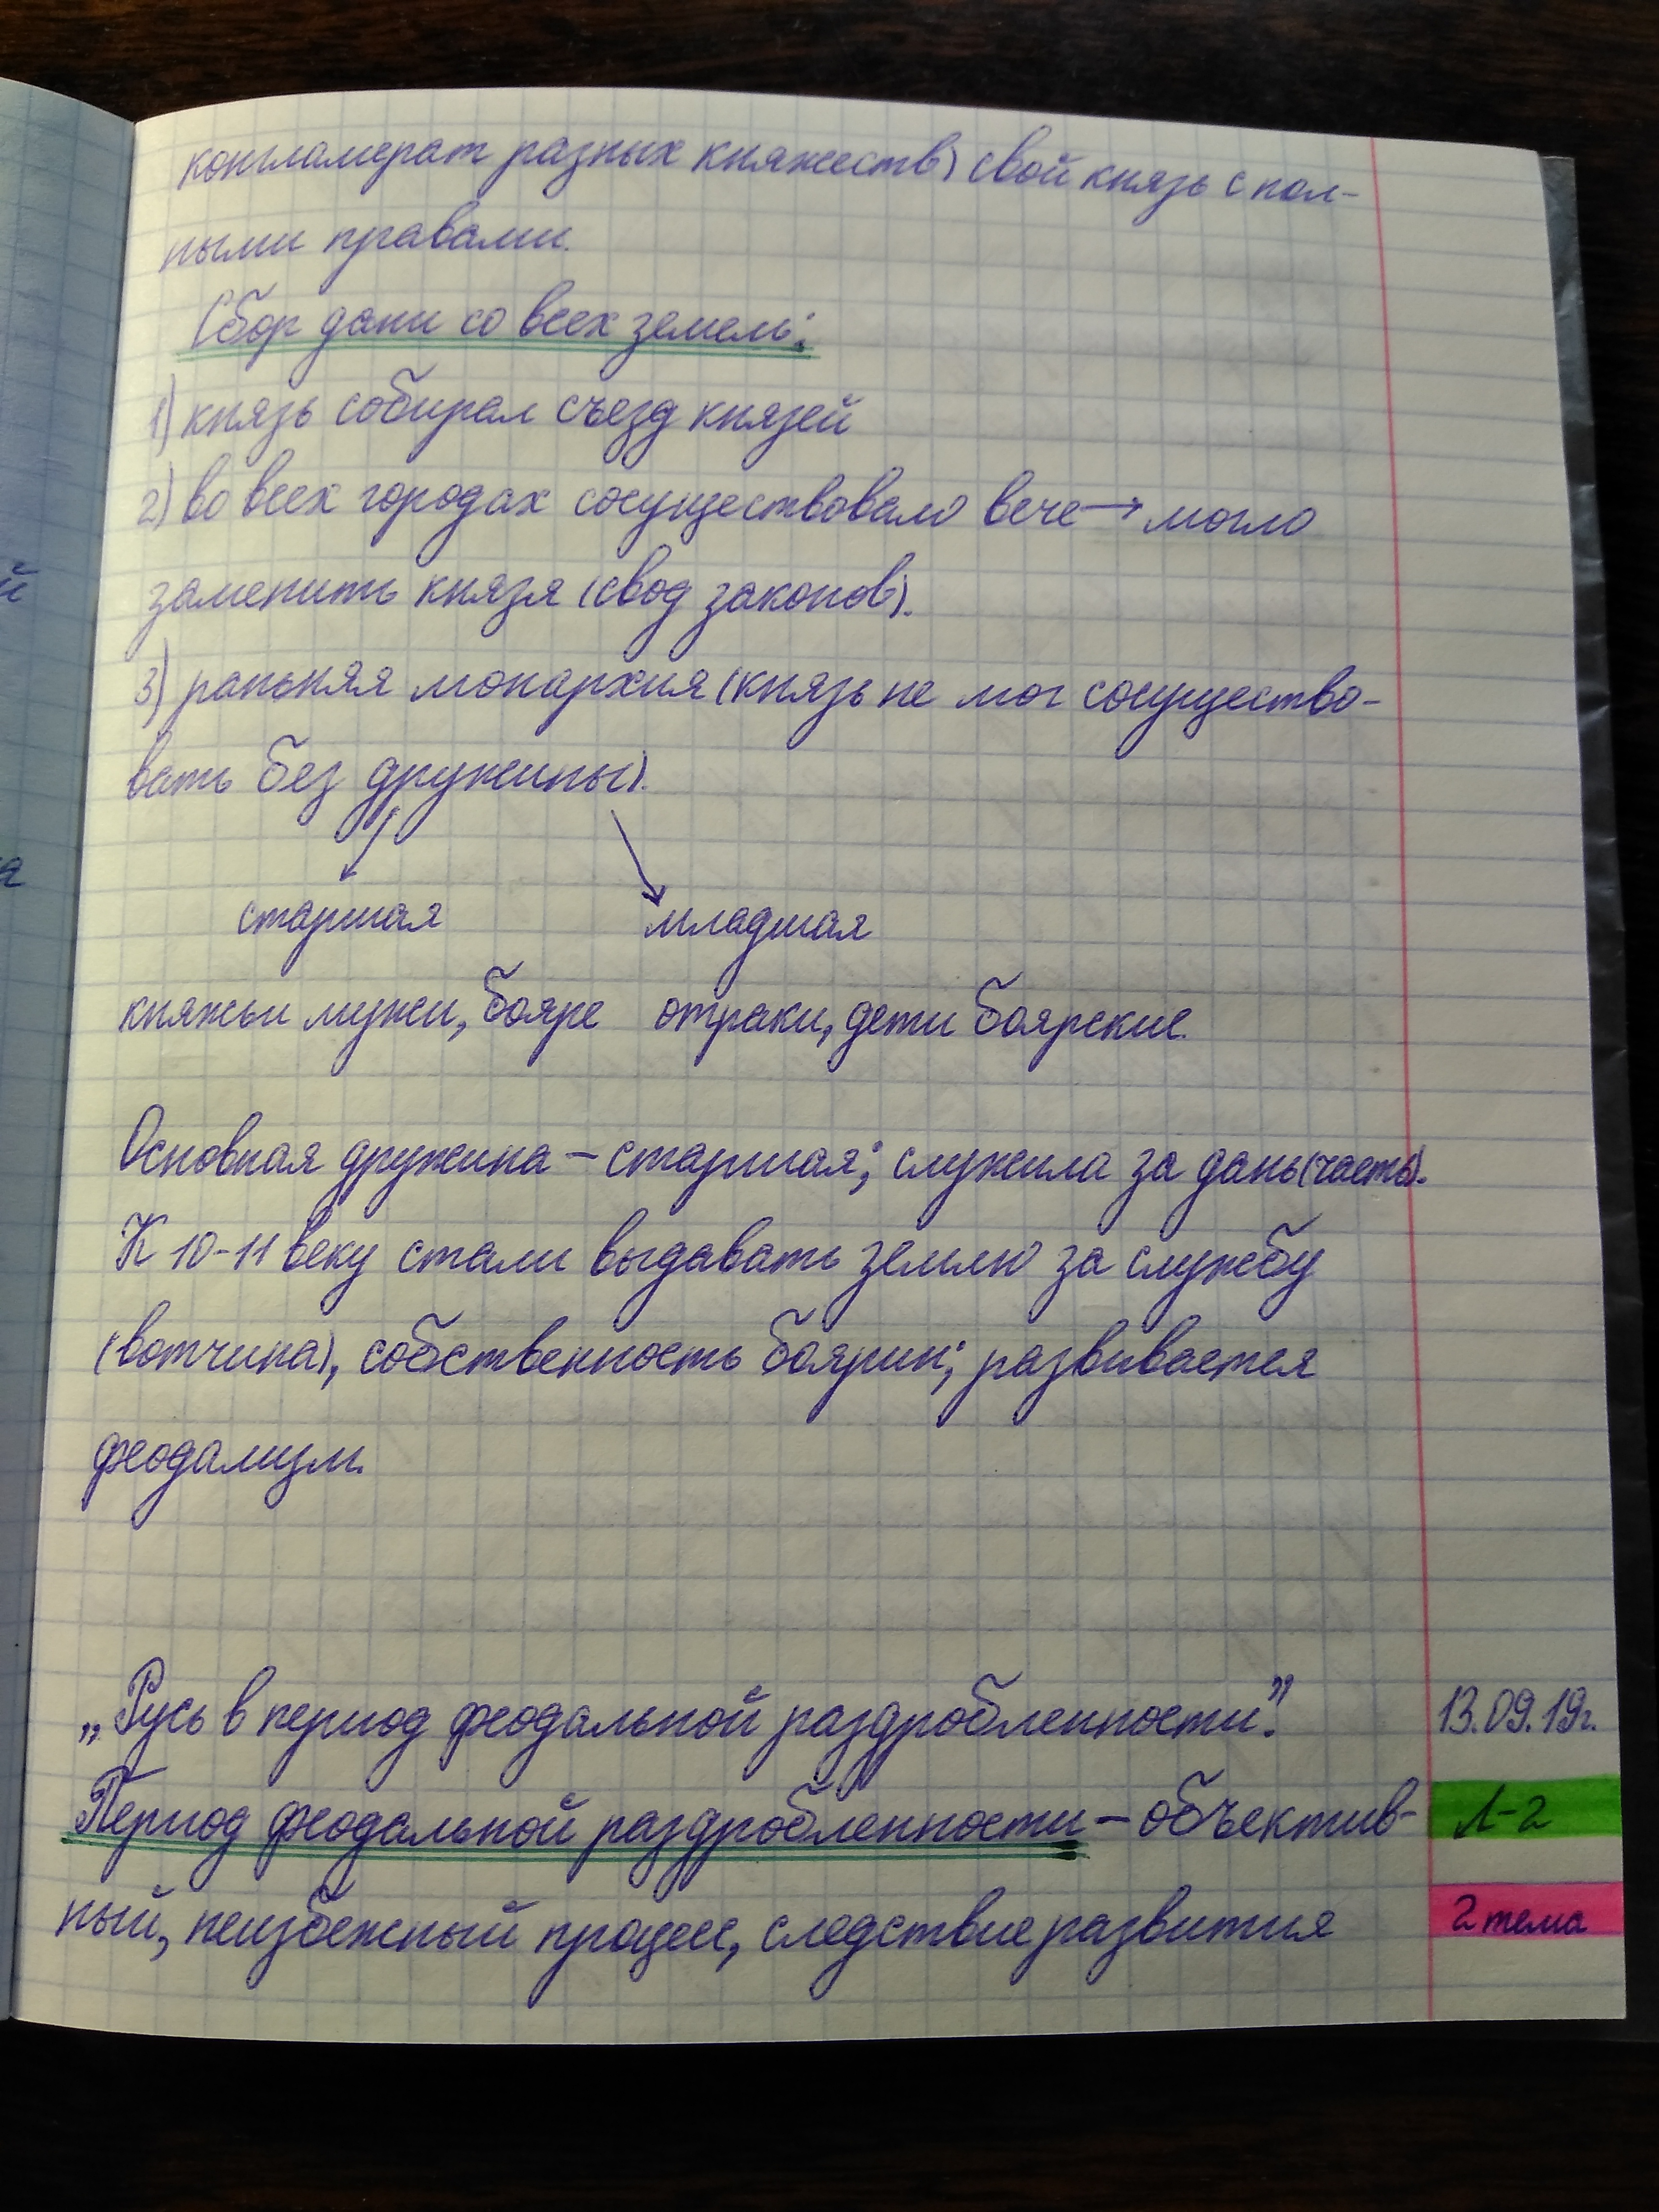 конгламерат разных княжеств) свой князь с пол-
ными правами.
Сбор дани со всех земель:
1) князь собирал съезд князей
2) во всех городах сосуществовало вече → могло
заменить князя (свод законов).
3) ранняя монархия (князь не мог сосущество-
вать без дружины).
старшая младшая
княжьи мужи, бояре отраки, дети боярские.
Основная дружина – старшая; служила за дань (часть).
К 10-11 веку стали выдавать землю за службу
(вотчина), собственность боярин; развивается
феодализм.
„Русь в период феодальной раздробленности". 13.09.19г.
Период феодальной раздробленности – объектив- Л-2
ный, неизбежный процесс, следствие развития 2 тема
й
я